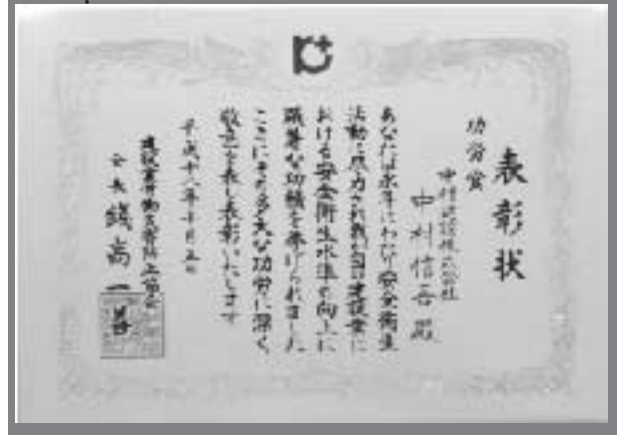 表彰状
功労賞
中村建設株式会社
中村信吾殿
あなたは永年にわたり安全衛生
活動に尽力され我が国建設業に
おける安全衛生水準の向上に
顕著な功績を挙げられました
ここにその多大な功労に深く
敬意を表し表彰いたします
平成十八年十月五日
建設業労働災害防止協会
会長 錢高一善